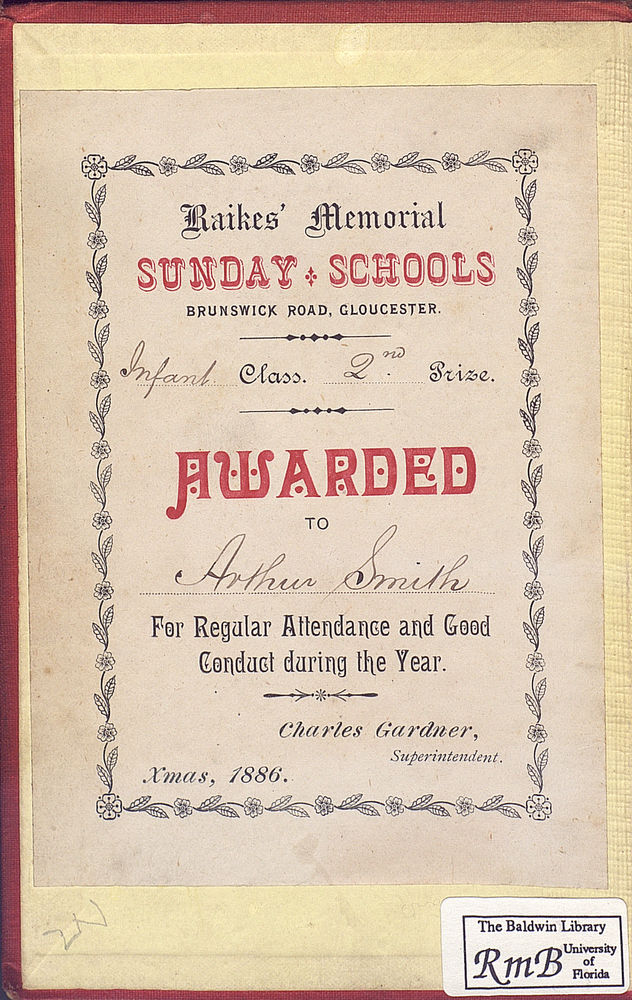 Raikes' Memorial
SUNDAY SCHOOLS
BRUNSWICK ROAD, GLOUCESTER.
Infant. Class. 2nd. Prize.
AWARDED
TO
Arthur Smith
For Regular Attendance and Good
Conduct during the Year.
Charles Gardner,
Superintendent.
Xmas, 1886.
The Baldwin Library
RmB University
of
Florida